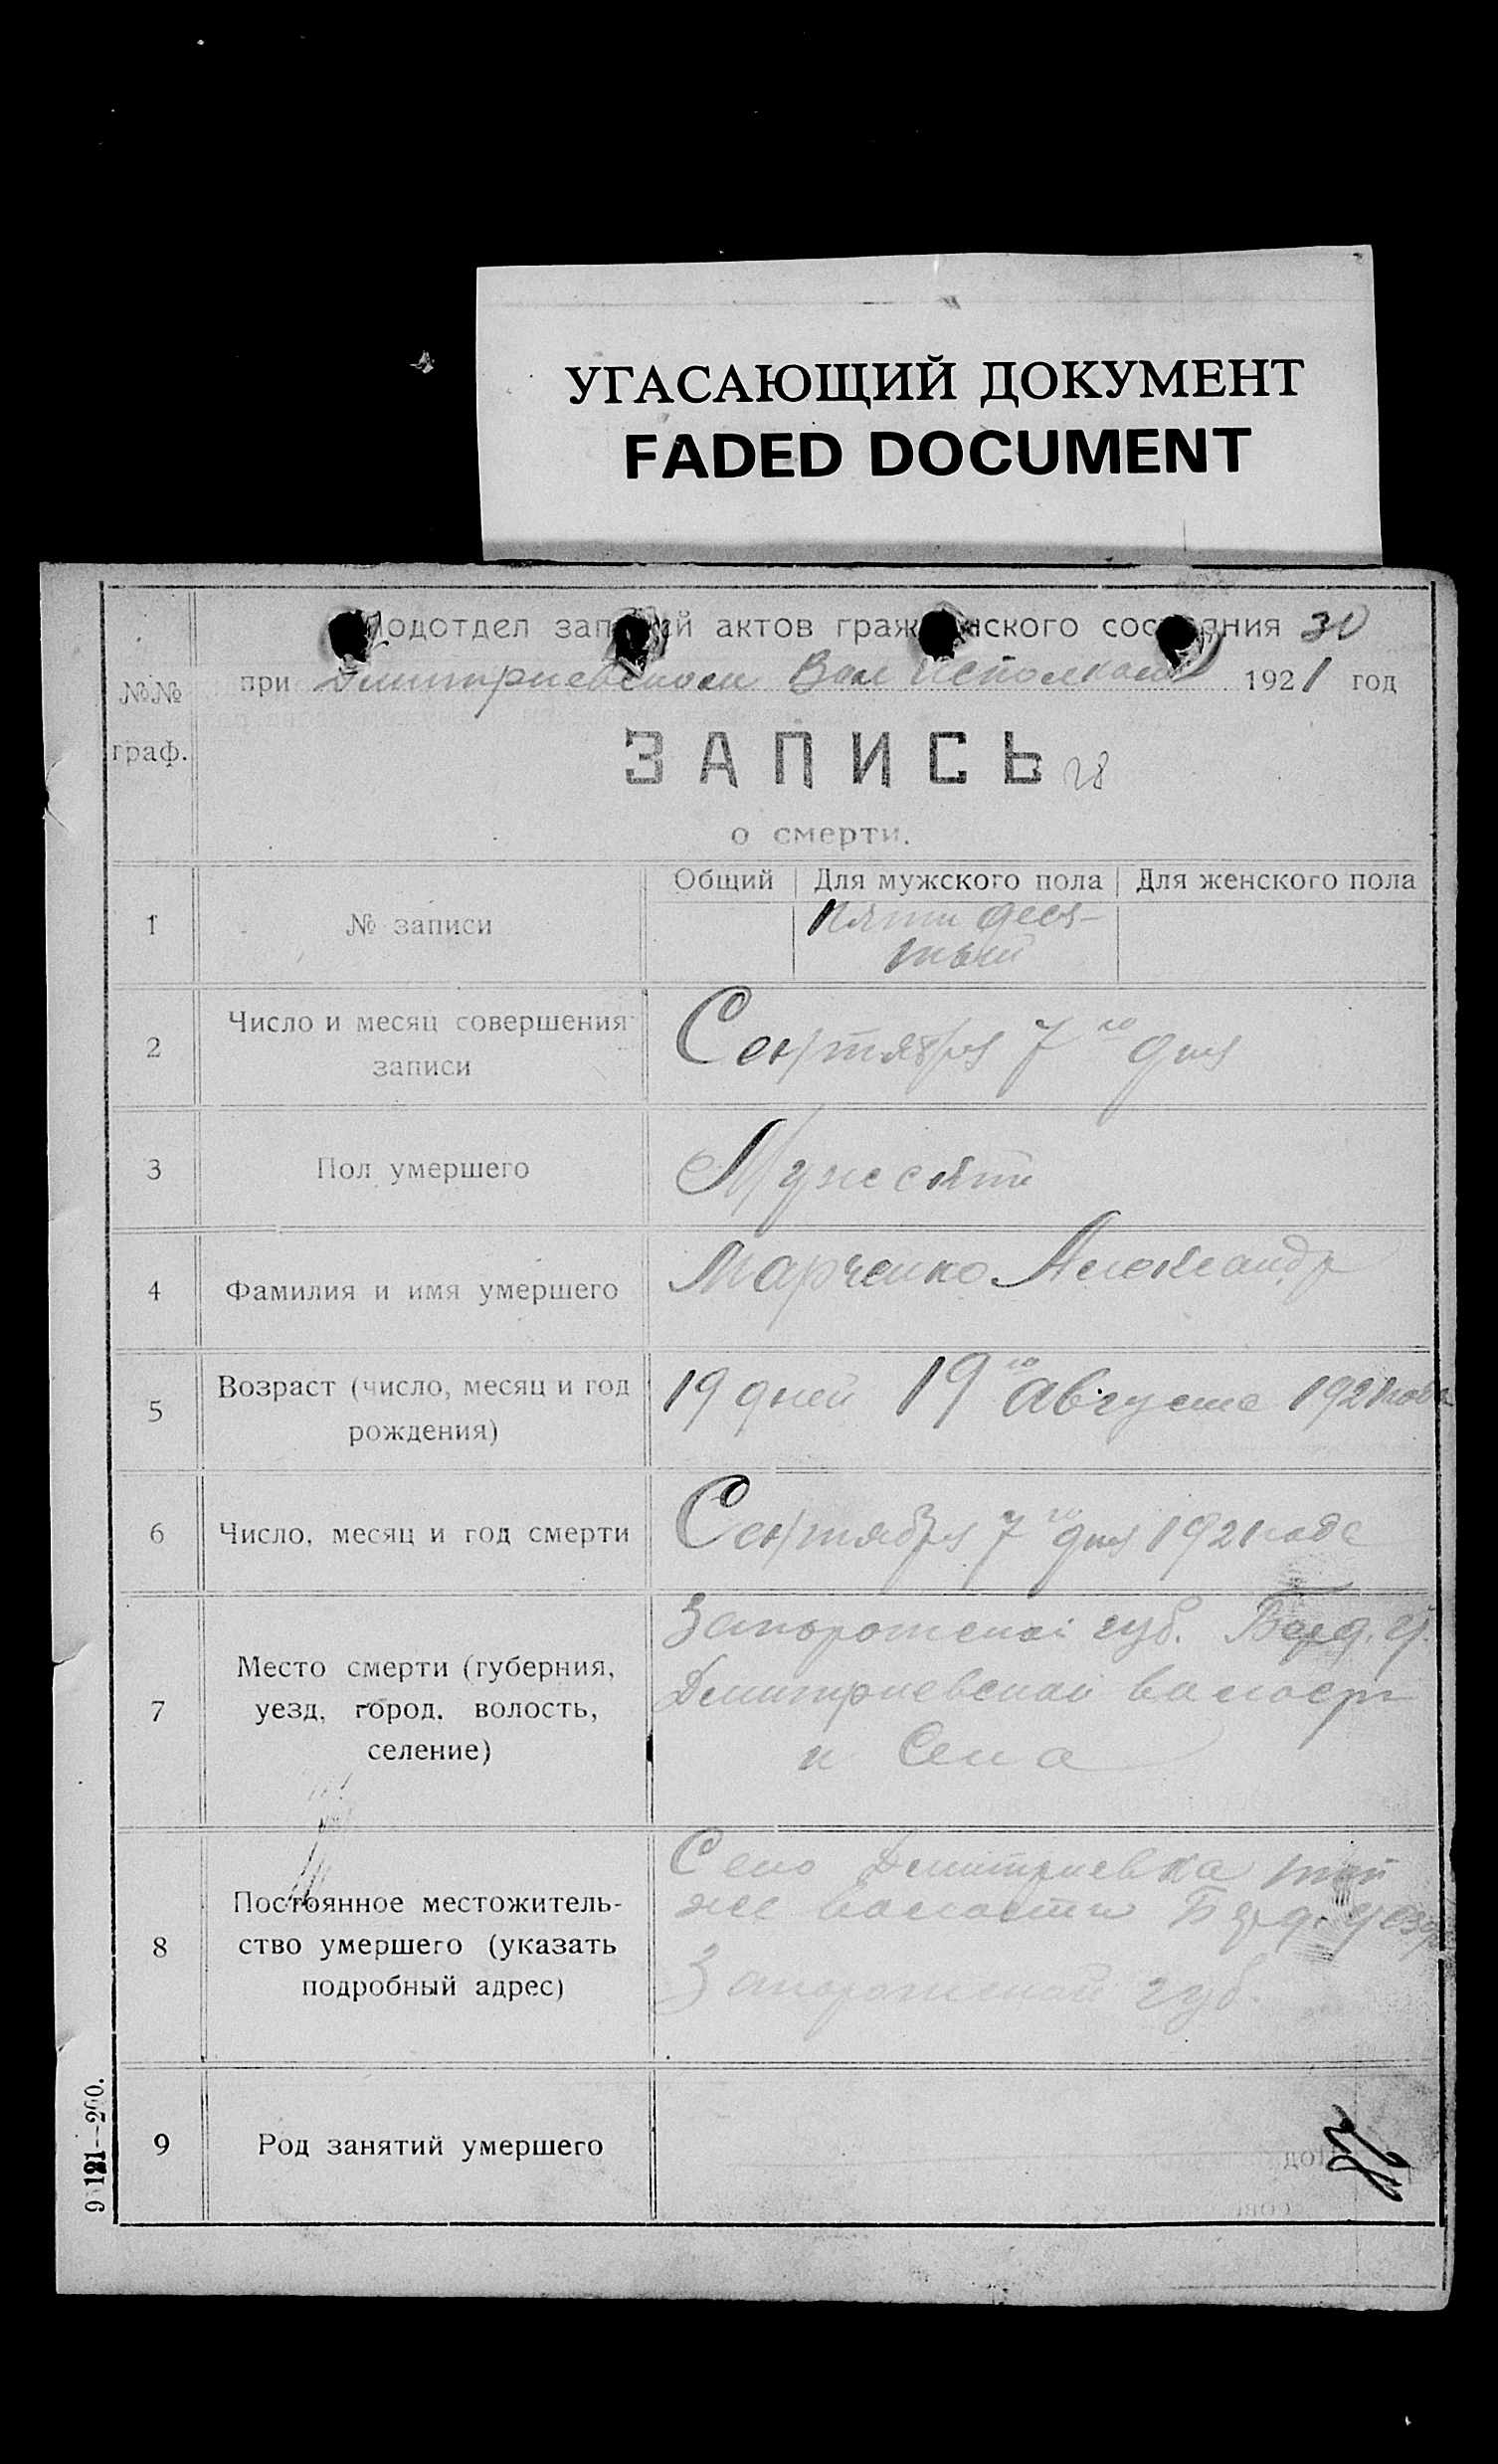 УГАСАЮЩИЙ ДОКУМЕНТ
FADED DOCUMENT
Подотдел записей актов гражданского состояния 30
№№ при Дмитриевском Вол Исполкоме 1921 год
граф.
ЗАПИСЬ 28
о смерти.
Общий Для мужского пола Для женского пола
1 № записи Пяти деся-
тый
2 Число и месяц совершения
записи
Сентября 7го дня
3 Пол умершего
4 Фамилия и имя умершего Марченко Александр
5 Возраст (число, месяц и год
рождения)
19 дней 19го Августа 1921 года
6 Число, месяц и год смерти Сентября 7го дня 1921 года
7 Место смерти (губерния,
уезд, город, волость,
селение)
Запорожской губ. Берд. у.
Дмитриевской
и Села
8 Постоянное местожитель-
ство умершего (указать
подробный адрес)
Село Дмитриевка той
же валости Берд. уезд
Запорожской губ.
9 Род занятий умершего
28